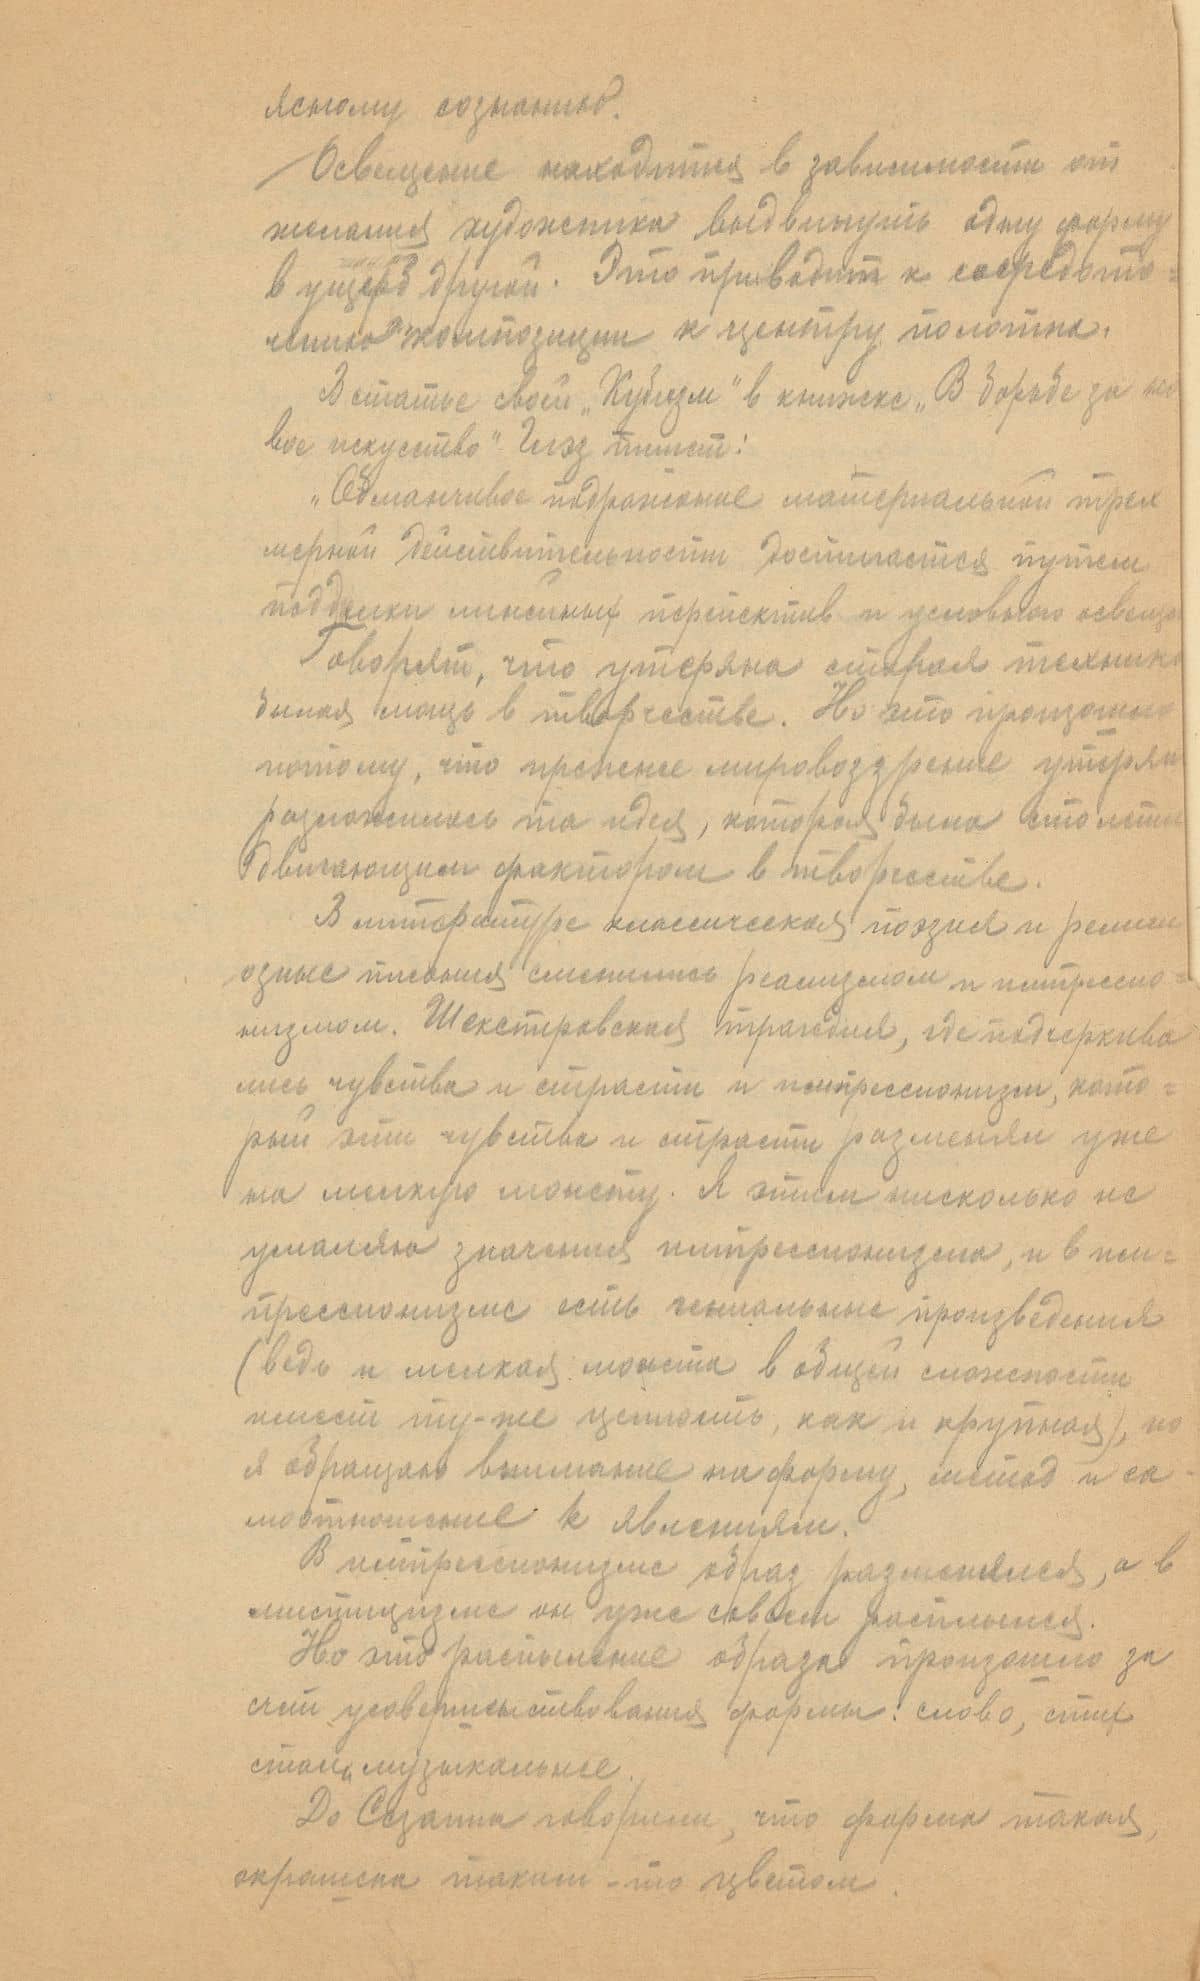 ясному сознанию.
Освещение находится в зависимости от
желания художника выдвинуть одну форму
в ущерб другой. Это приводит к сосредото=
чению композиции к центру полотна.
В статье своей „Кубизм" в книжке „В борьбе за но
вое искусство" Глэз пишет:
„Обманчивое подражание материальной трех
мерной действительности достигается путем
подделки линейных перспектив и условного освеще
Говорят, что утеряна старая техника
былая мощь в творчестве. Но это произошло
потому, что прежнее мировоззрение утеря
разложилась та идея, которая была столети
двигающим фактором в творчестве.
В литературе классическая поэзия и религи
озные писания сменились реализмом и импрессио=
низмом. Шекспировская трагедия, где подчеркива
лись чувства и страсти и импрессионизм, кото=
рый эти чувства и страсти разменял уже
на мелкую монету. Я этим нисколько не
умаляю значения импрессионизма, и в им=
прессионизме есть гениальные произведения
(ведь и мелкая монета в общей сложности
имеет ту-же ценность, как и крупная), но
я обращаю внимание на форму, метод и са-
моотношение к явлениям.
В импрессионизме образ разменялся, а в
мистицизме он уже совсем распылился.
Но это распыление образа произошло за
счет усовершенствования формы: слово, стих
стали музыкальнее.
До Сезанна говорили, что форма такая,
окрашена таким-то цветом.